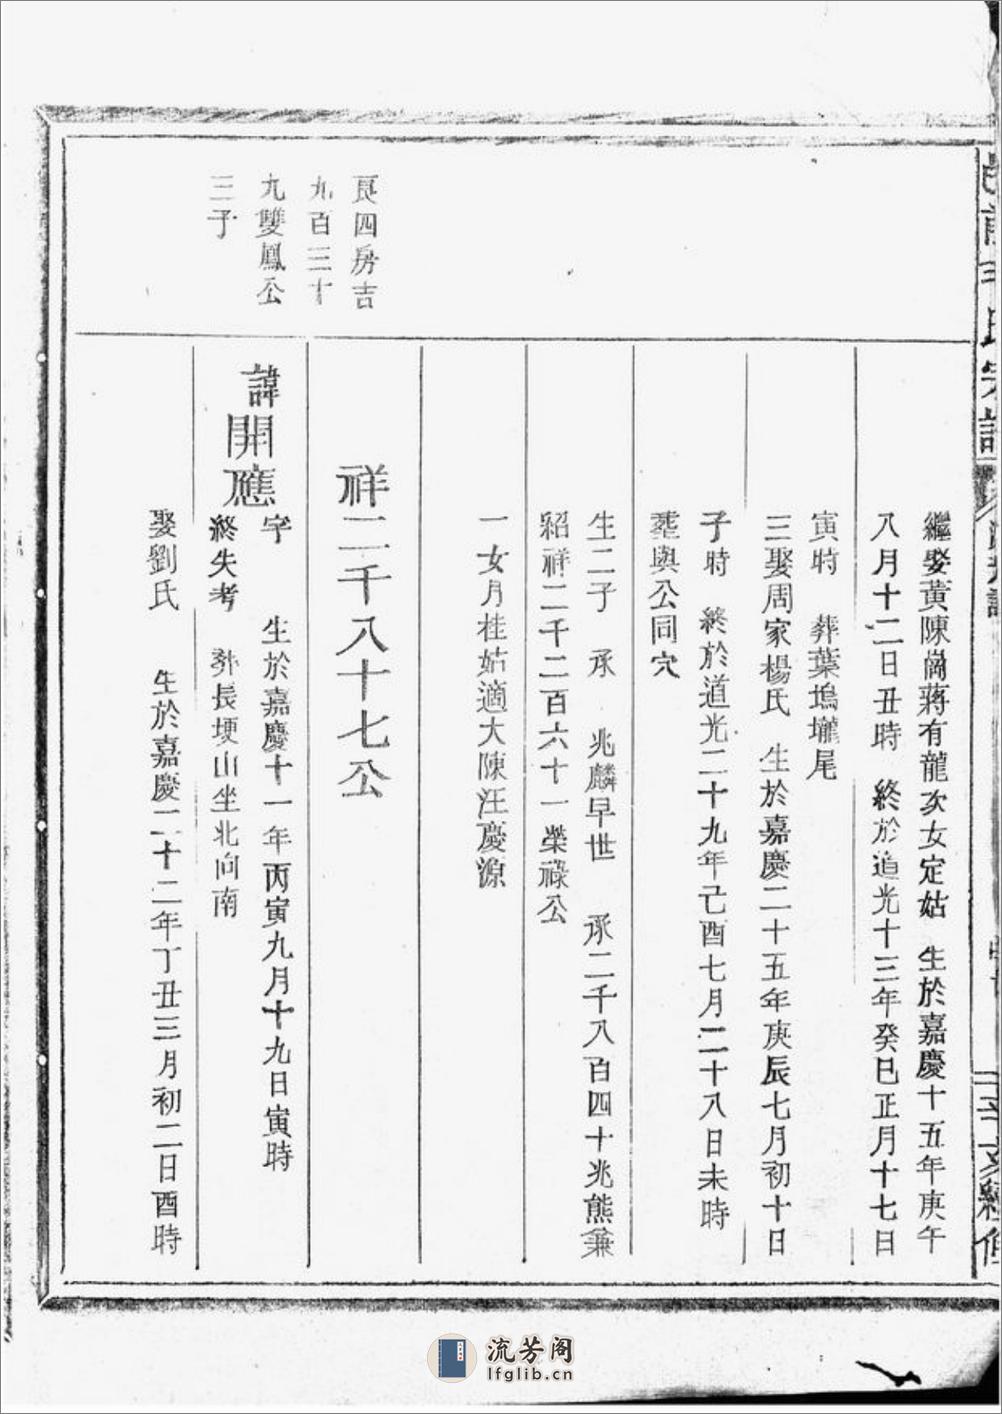 氏宗譜
繼娶黃陳崗蔣有龍次女定姑 生於嘉慶十五年庚午
八月十二日丑時 終於道光十三年癸巳正月十七日
寅時 葬葉塢壠尾
三娶周家楊氏 生於嘉慶二十五年庚辰七月初十日
子時 終於道光二十九年己酉七月二十八日未時
塟與公同穴
生二子 承 兆麟早世 承二千八百四十兆熊兼
紹祥二千二百六十一榮祿公
一女月桂姑適大陳汪慶源
祥二千八十七公
長四房吉
九百三十
九雙鳳公
三子
諱開應
字 生於嘉慶十一年丙寅九月十九日寅時
終失考 葬長埂山坐北向南
娶劉氏 生於嘉慶二十二年丁丑三月初二日酉時
流芳阁
lfglib.cn